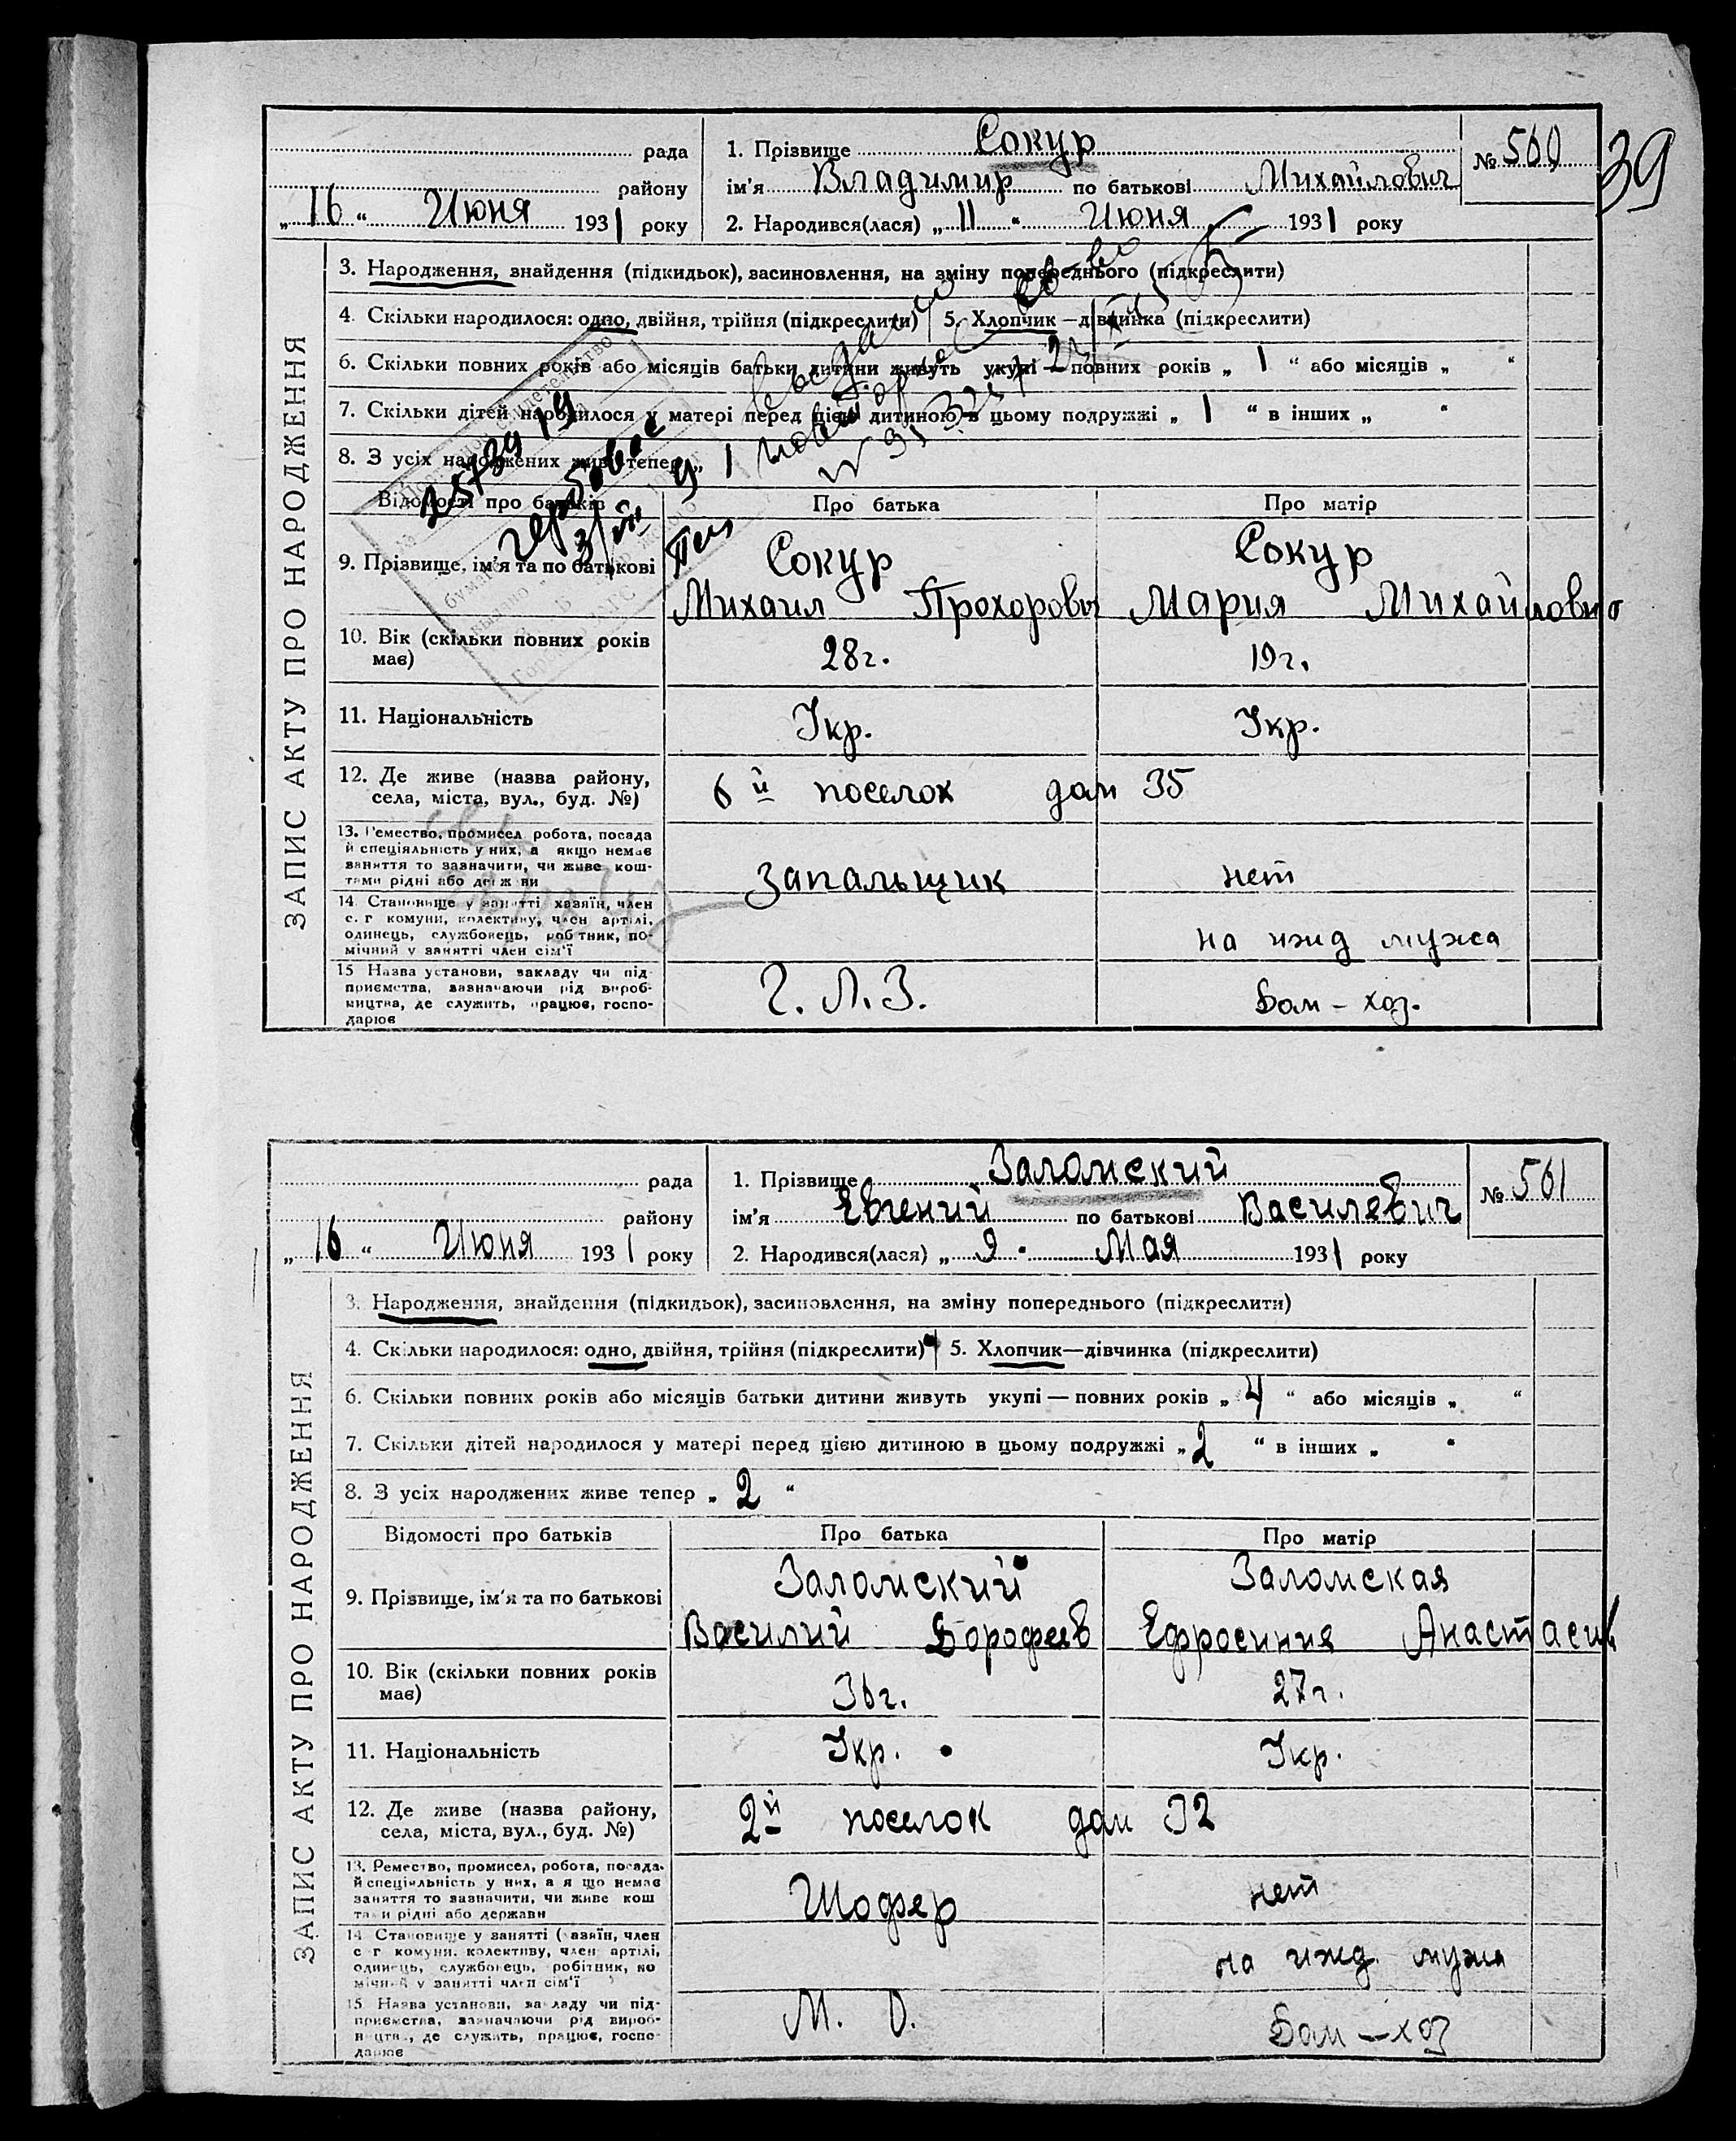 39
рада
району
„ 16 “ Июня 1931 року
1. Прізвище Сокур
ім'я Владимир по батькові Михайлович
2. Народився(лася) „ 11 “ Июня 1931 року
№ 560
ЗАПИС АКТУ ПРО НАРОДЖЕННЯ
3. Народження, знайдення (підкидьок), засиновлення, на зміну попереднього (підкреслити)
4. Скільки народилося: одно, двійня, трійня (підкреслити) 5. Хлопчик—дівчинка (підкреслити)
6. Скільки повних років або місяців батьки дитини живуть укупі — повних років „ 1 “ або місяців „ “
7. Скільки дітей народилося у матері перед цією дитиною в цьому подружжі „ 1 “ в інших „ “
8. З усіх народжених живе тепер „ 1
Відомості про батьків
Про батька
Про матір
9. Прізвище, ім'я та по батькові
Сокур
Михаил Прохорович
Сокур
Мария Михайловна
10. Вік (скільки повних років
має)
28г.
19г.
11. Національність
Укр.
Укр.
12. Де живе (назва району,
села, міста, вул., буд. №)
6й поселок дом 35
13. Ремество, промисел робота, посада
й спеціяльність у них, а якщо немає
заняття то зазначити, чи живе кош-
тами рідні або держави
Запальщик
нет
14 Становище у занятті хазяїн, член
с. г комуни, колективу, член артілі,
одинець, службовець, робітник, по-
мічний у занятті член сім'ї
на ижд мужа
15 Назва установи, закладу чи під-
приємства, зазначаючи рід вироб-
ництва, де служить, працює, госпо-
дарює
Ч. Л. З.
Дом – хоз.
рада
району
„ 16 “ Июня 1931 року
1. Прізвище Заломский
ім'я Евгений по батькові Василевич
2. Народився(лася) „ 9 “ Мая 1931 року
№ 561
ЗАПИС АКТУ ПРО НАРОДЖЕННЯ
3. Народження, знайдення (підкидьок), засиновлення, на зміну попереднього (підкреслити)
4. Скільки народилося: одно, двійня, трійня (підкреслити) 5. Хлопчик—дівчинка (підкреслити)
6. Скільки повних років або місяців батьки дитини живуть укупі — повних років „ 4 “ або місяців „ “
7. Скільки дітей народилося у матері перед цією дитиною в цьому подружжі „ 2 “ в інших „ “
8. З усіх народжених живе тепер „ 2 “
Відомості про батьків
Про батька
Про матір
9. Прізвище, ім'я та по батькові
Заломский
Василий Дорофеев
Заломская
Ефросиния Анастасив
10. Вік (скільки повних років
має)
36г.
27г.
11. Національність
Укр.
Укр.
12. Де живе (назва району,
села, міста, вул., буд. №)
2й поселок дом 32
13. Ремество, промисел, робота, посада.
й спеціяльність у них, а якщо немає
заняття то зазначити, чи живе кош
тами рідні або держави
Шофер
нет
14 Становище у занятті (хазяїн, член
с г комуни, колективу, член артілі,
одинець, службовець, робітник, по
мічний у занятті член сім'ї
на ижд. мужа
15. Назва установи, закладу чи під-
приємства, зазначаючи рід вироб-
ництва, де служить, працює, госпо-
дарює
М. О.
Дом – хоз